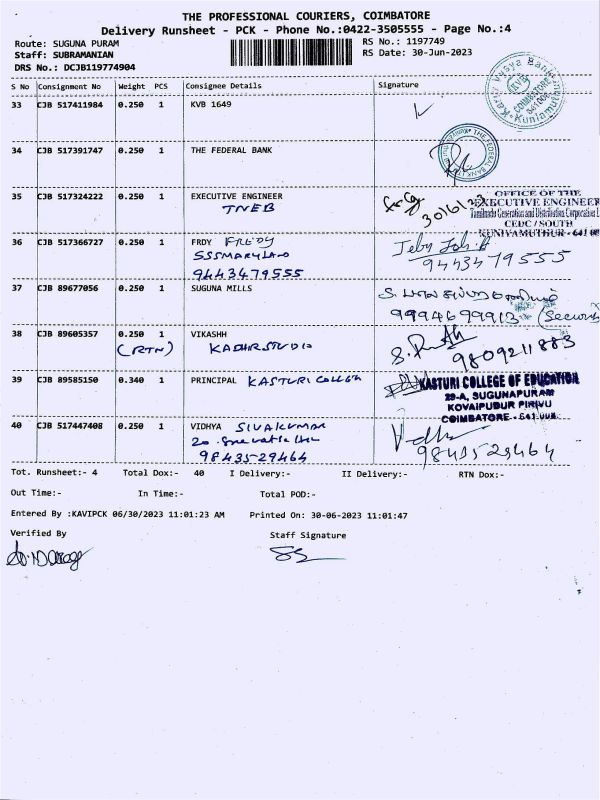 THE PROFESSIONAL COURIERS, COIMBATORE
Delivery Runsheet - PCK - Phone No.:0422-3505555 - Page No.:4
Route: SUGUNA PURAM
RS No.: 1197749
Staff: SUBRAMANIAN
RS Date: 30-Jun-2023
DRS No.: DCJB119774904
S No Consignment No Weight PCS Consignee Details Signature
33 CJB 517411984 0.250 1 KVB 1649
34 CJB 517391747 0.250 1 THE FEDERAL BANK
35 CJB 517324222 0.250 1 EXECUTIVE ENGINEER
TNEB
30/6/23
OFFICE OF THE
EXECUTIVE ENGINEER
Tamilnadu Generation and Distribution Corporation L
CEDC / SOUTH
KUNIYAMUTHUR - 641 008
36 CJB 517366727 0.250 1 FRDY FREDY
SSSMARYLAND
9443479555
9443479555
37 CJB 89677056 0.250 1 SUGUNA MILLS
9994699913 (Securi
38 CJB 89605357 0.250 1 VIKASHH
(RTN) KADHIRSTUDIO
9809211883
39 CJB 89585150 0.340 1 PRINCIPAL KASTURI COLLEGE
KASTURI COLLEGE OF EDUCATION
29-A, SUGUNAPURAM
KOVAIPUDUR PIRIVU
COIMBATORE - 641 008
40 CJB 517447408 0.250 1 VIDHYA SIVAKUMAR
9843529464
9843529464
Tot. Runsheet:- 4 Total Dox:- 40 I Delivery:- II Delivery:- RTN Dox:-
Out Time:- In Time:- Total POD:-
Entered By :KAVIPCK 06/30/2023 11:01:23 AM Printed On: 30-06-2023 11:01:47
Verified By Staff Signature